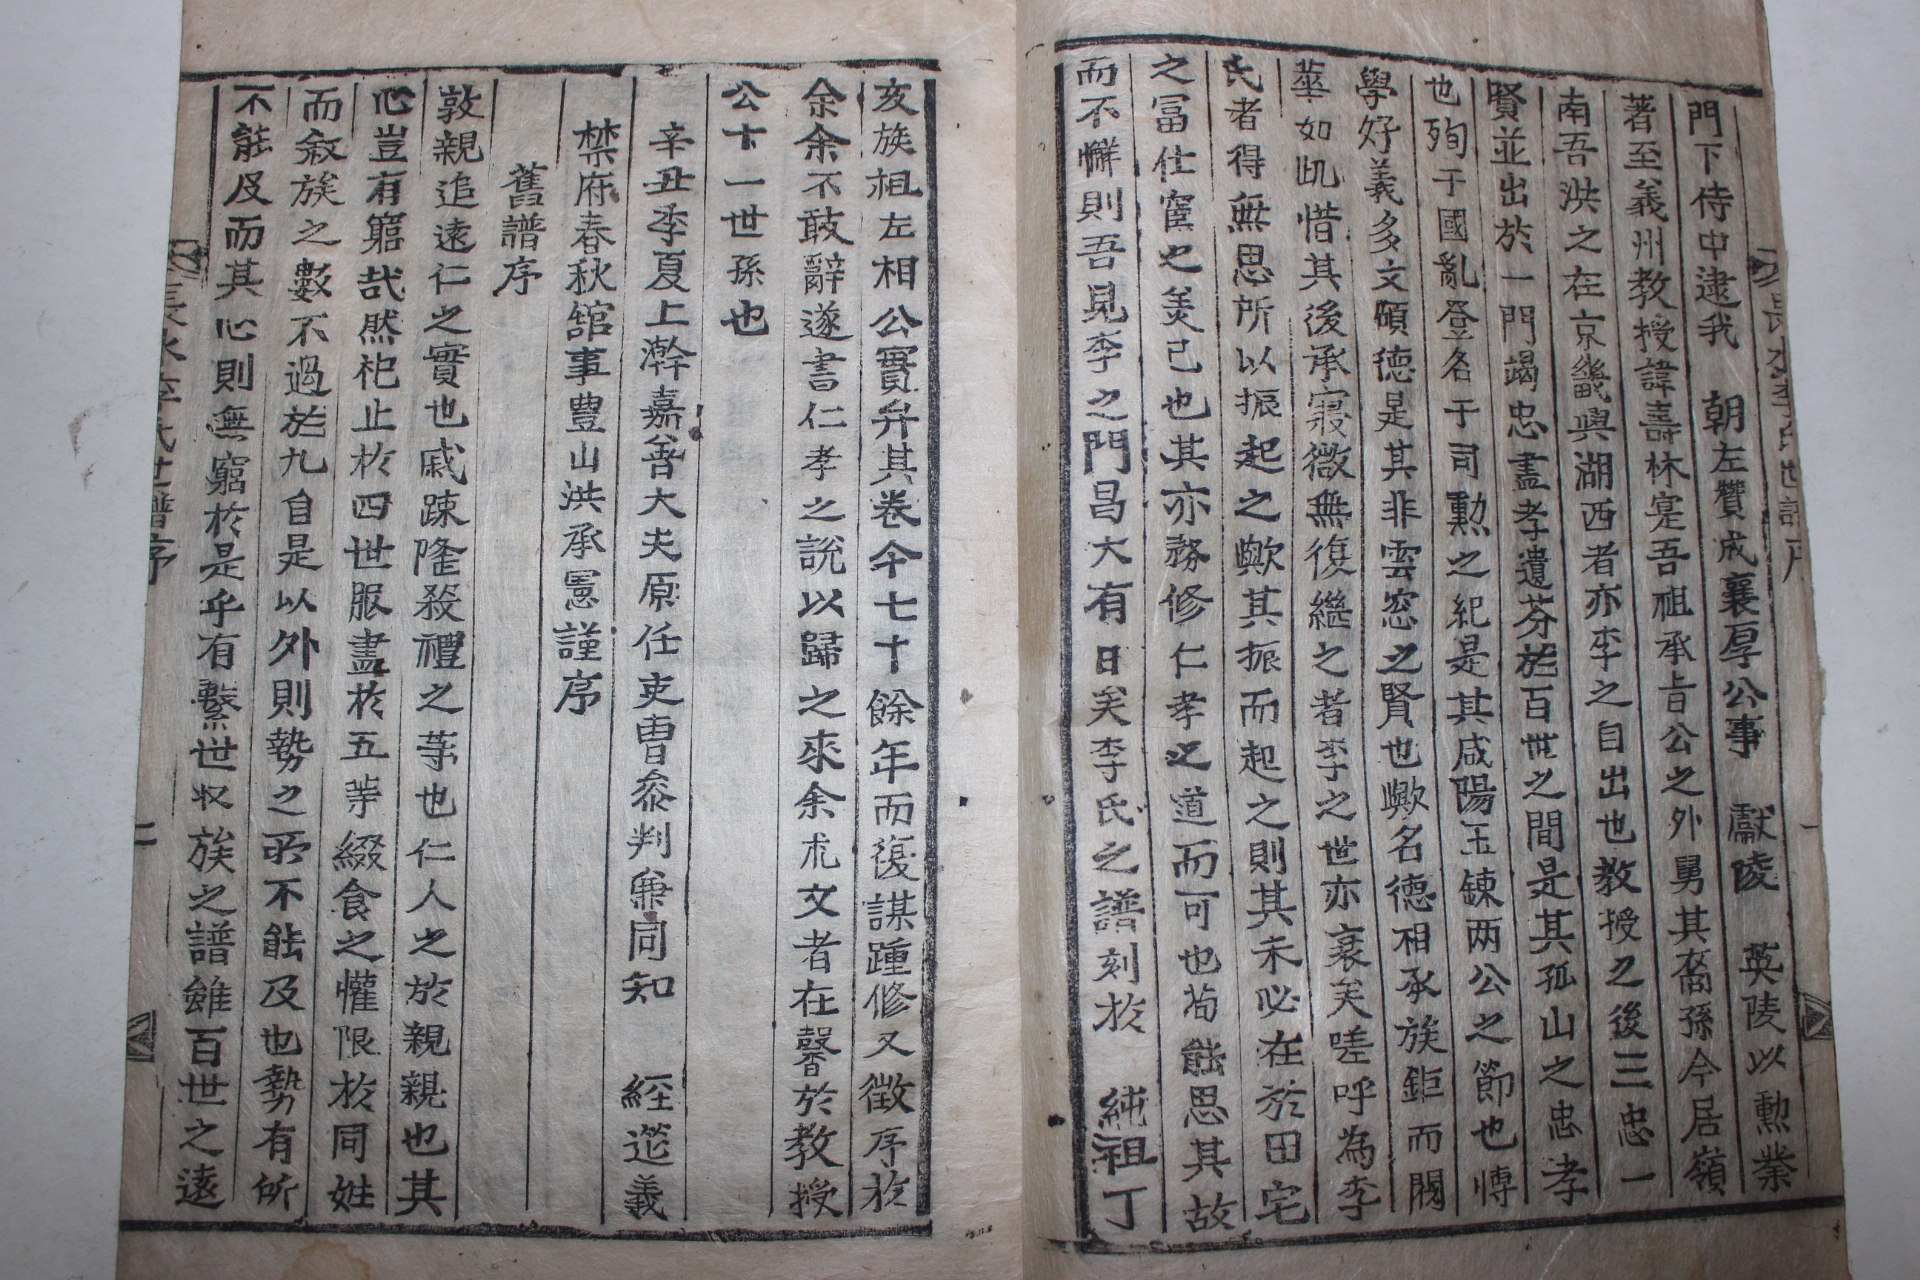 門下侍中逮我 朝左贊成襄厚公事 獻陵 英陵以勳業
著至義州教授諱壽林寔吾祖承旨公之外舅其裔孫今居嶺
南吾洪之在京畿與湖西者亦李之自出也教授之後三忠一
賢並出於一門竭忠盡孝遺芬於百世之間是其孤山之忠孝
也殉于國亂登名于司勳之紀是其咸陽玉鍊两公之節也博
學好義多文碩德是其非雲窓之賢也歟名德相承族鉅而閥
華如此惜其後承寢微無復繼之者李之世亦衰矣嗟呼為李
氏者得無思所以振起之歟其振而起之則其未必在於田宅
之冨仕宦之美已也其亦務修仁孝之道而可也苟能思其故
而不懈則吾見李之門昌大有日矣李氏之譜刻於 純祖丁
亥族祖左相公實弁其卷今七十餘年而復謀踵修又徵序於
余余不敢辭遂書仁孝之說以歸之來余朮文者在馨於教授
公十一世孫也
辛丑季夏上澣嘉善大夫原任吏曹叅判兼同知 經筵義
禁府春秋舘事豊山洪承憲謹序
舊譜序
敦親追遠仁之實也戚踈隆殺禮之等也仁人之於親親也其
心豈有窮哉然祀止於四世服盡於五等綴食之懽限於同姓
而敘族之數不過於九自是以外則勢之所不能及也勢有所
不能及而其心則無窮於是乎有繫世収族之譜雖百世之遠
長水李氏世譜序
二